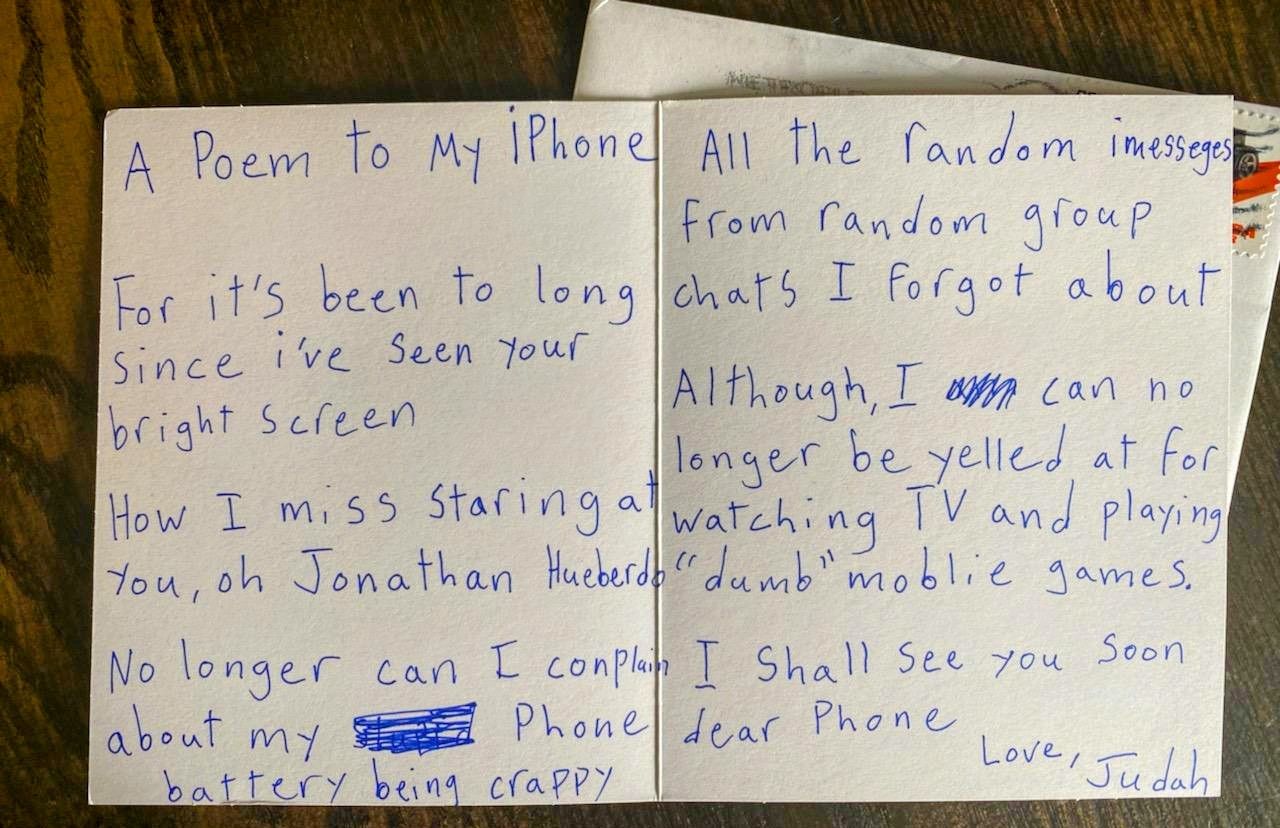 A Poem to My iPhone
For it's been to long
since i've seen your
bright screen
How I miss staring at
you, oh Jonathan Hueberdo
No longer can I conplain
about my Phone
battery being crappy
All the random imesseges
from random group
chats I forgot about
Although, I can no
longer be yelled at for
watching TV and playing
"dumb" moblie games.
I Shall see you soon
dear Phone
Love,
Judah